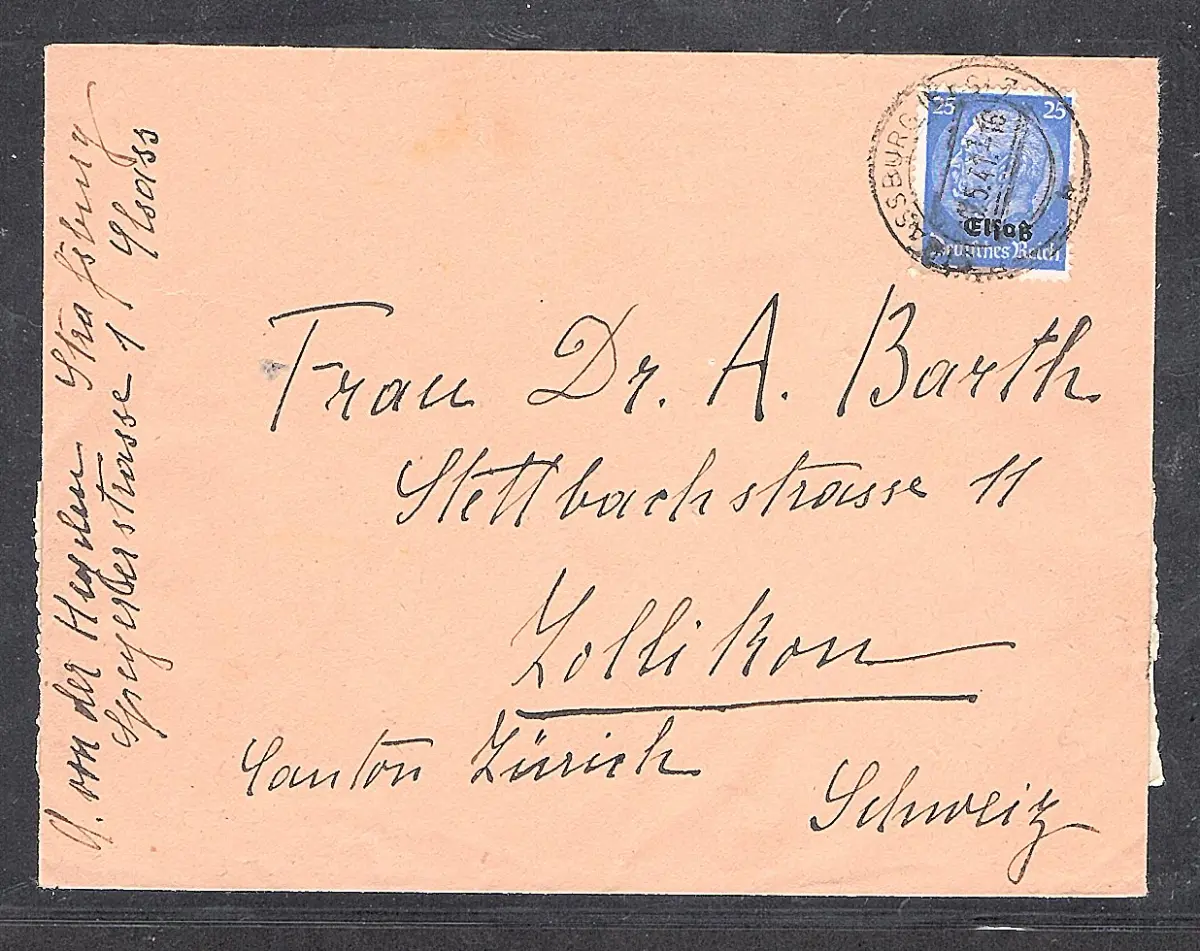 25 25
Elsaß
Deutsches Reich
5.41
Frau Dr. A. Barth
Stettbachstrasse 11
Zollikon
Canton Zürich
Schweiz
von der Heyden Straſsburg
Speyerserstrasse 1 Elsass